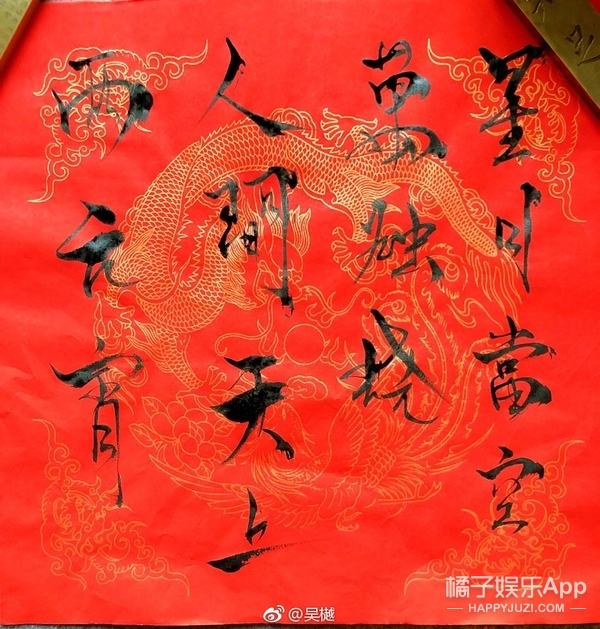 星月當空
萬燭燒
人間天上
兩元宵
@吴樾
橘子娱乐App
HAPPYJUZI.COM